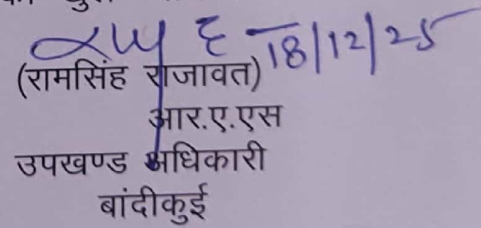 18/12/25
(रामसिंह राजावत)
आर.ए.एस
उपखण्ड अधिकारी
बांदीकुई